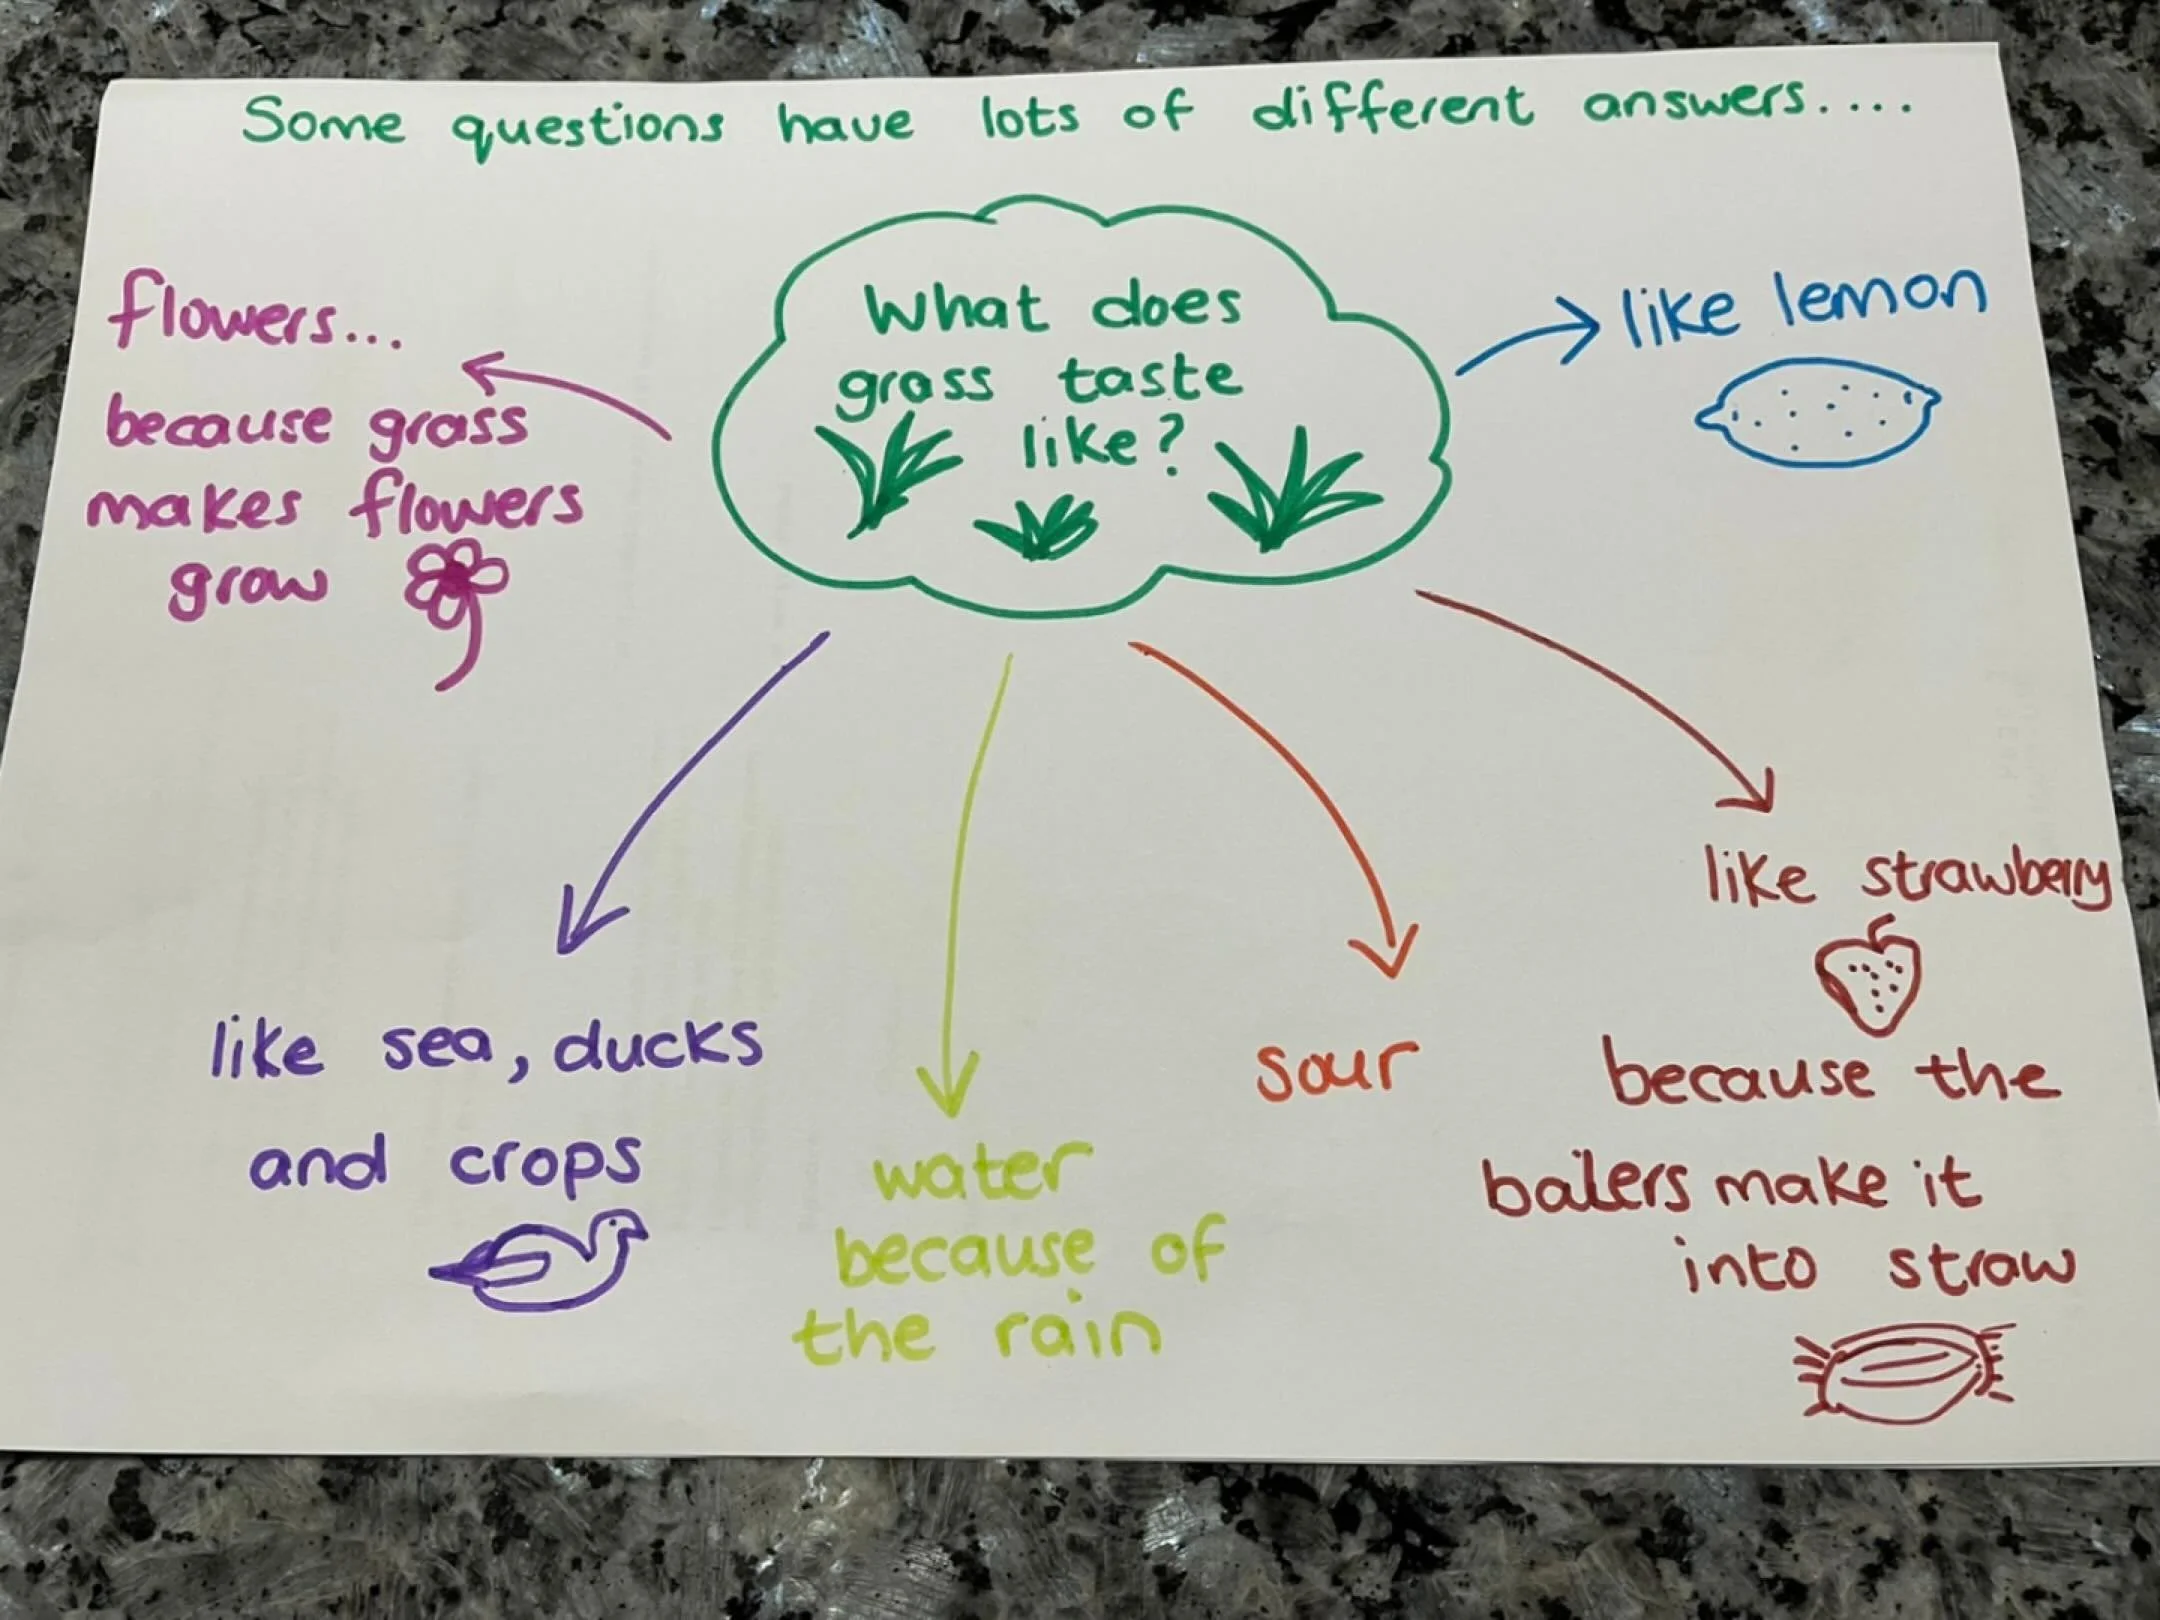 Some questions have lots of different answers....
What does
grass taste
like?
flowers...
because grass
makes flowers
grow
like lemon
like sea, ducks
and crops
water
because of
the rain
sour
like strawberry
because the
bailers make it
into straw